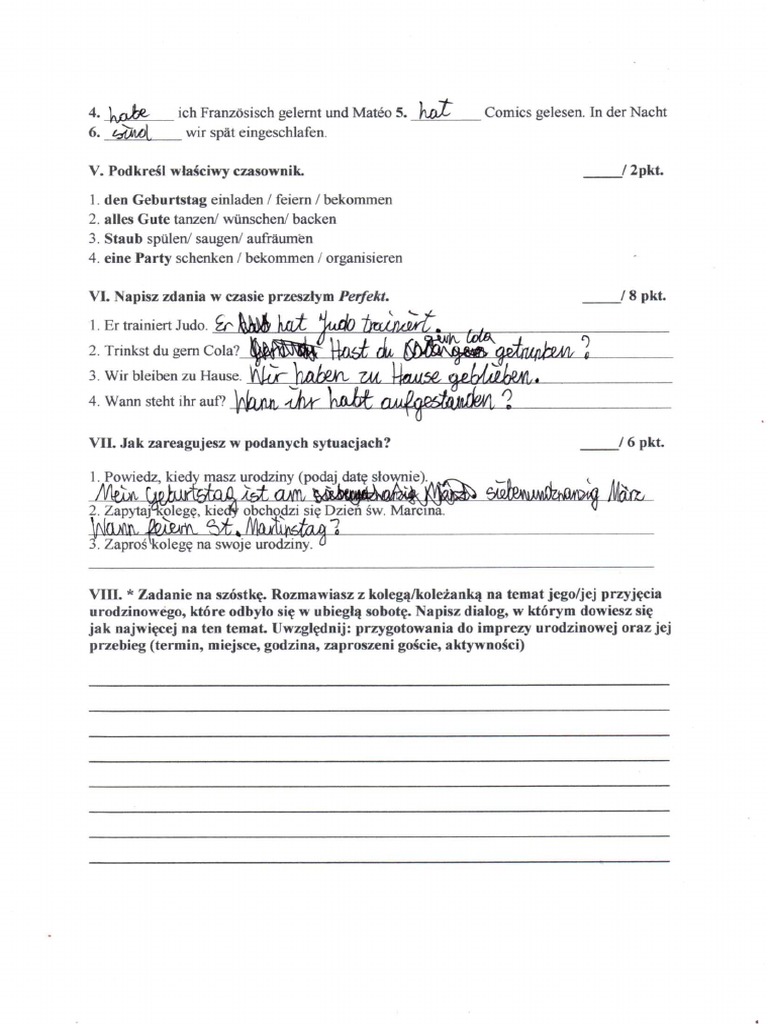 4. habe ich Französisch gelernt und Matéo 5. hat Comics gelesen. In der Nacht
6. sind wir spät eingeschlafen.
V. Podkreśl właściwy czasownik. _____/ 2pkt.
1. den Geburtstag einladen / feiern / bekommen
2. alles Gute tanzen/ wünschen/ backen
3. Staub spülen/ saugen/ aufräumen
4. eine Party schenken / bekommen / organisieren
VI. Napisz zdania w czasie przeszłym Perfekt. _____/ 8 pkt.
1. Er trainiert Judo. Er hat Judo trainiert.
2. Trinkst du gern Cola? Hast du gern Cola getrunken?
3. Wir bleiben zu Hause. Wir haben zu Hause geblieben.
4. Wann steht ihr auf? Wann ihr habt aufgestanden?
VII. Jak zareagujesz w podanych sytuacjach? _____/ 6 pkt.
1. Powiedz, kiedy masz urodziny (podaj datę słownie).
Mein Geburtstag ist am siebenundznanzig März
2. Zapytaj kolegę, kiedy obchodzi się Dzień św. Marcina.
Wann feiern St. Martinstag?
3. Zaproś kolegę na swoje urodziny.
VIII. * Zadanie na szóstkę. Rozmawiasz z kolegą/koleżanką na temat jego/jej przyjęcia
urodzinowego, które odbyło się w ubiegłą sobotę. Napisz dialog, w którym dowiesz się
jak najwięcej na ten temat. Uwzględnij: przygotowania do imprezy urodzinowej oraz jej
przebieg (termin, miejsce, godzina, zaproszeni goście, aktywności)